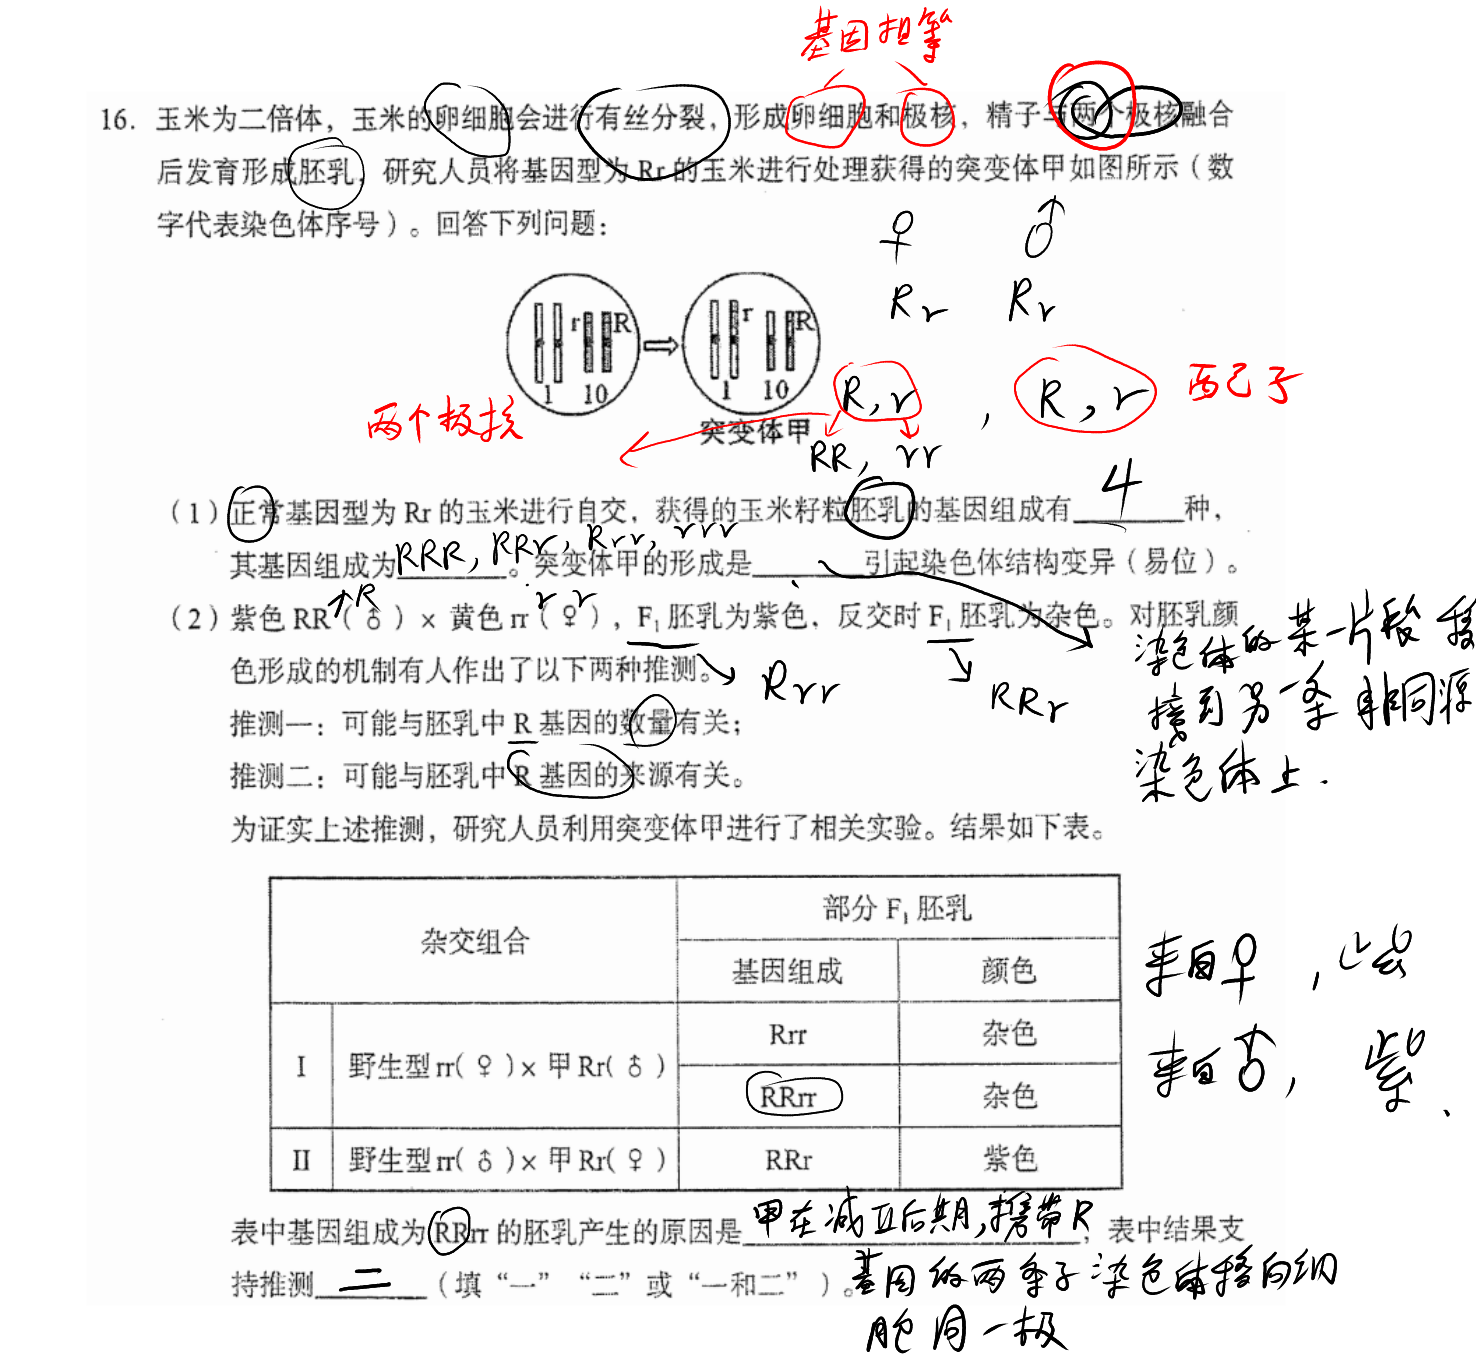 基因相等
16. 玉米为二倍体，玉米的卵细胞会进行有丝分裂，形成卵细胞和极核，精子与两个极核融合
后发育形成胚乳，研究人员将基因型为 Rr 的玉米进行处理获得的突变体甲如图所示（数
字代表染色体序号）。回答下列问题：
♀ ♂
Rr Rr
r R r R
1 10 1 10
突变体甲
R, r , R, r
两个极核
RR, rr
（1）正常基因型为 Rr 的玉米进行自交，获得的玉米籽粒胚乳的基因组成有 4 种，
其基因组成为 RRR, RRr, Rrr, rrr 。突变体甲的形成是________引起染色体结构变异（易位）。
R r r
（2）紫色 RR（♂）× 黄色 rr（♀），F₁ 胚乳为紫色，反交时 F₁ 胚乳为杂色。对胚乳颜
色形成的机制有人作出了以下两种推测。
Rrr RRr
染色体的某一片段移
接到另一条非同源
染色体上.
推测一：可能与胚乳中 R 基因的数量有关；
推测二：可能与胚乳中 R 基因的来源有关。
为证实上述推测，研究人员利用突变体甲进行了相关实验。结果如下表。
杂交组合 部分 F₁ 胚乳
基因组成 颜色
I 野生型 rr(♀)×甲 Rr(♂) Rrr 杂色
RRrr 杂色
II 野生型 rr(♂)×甲 Rr(♀) RRr 紫色
来自♀,
来自♂, 紫.
表中基因组成为 RRrr 的胚乳产生的原因是 甲在减Ⅱ后期,携带R ，表中结果支
持推测 二 （填“一”“二”或“一和二”）。
基因的两条子染色体移向细
胞同一极